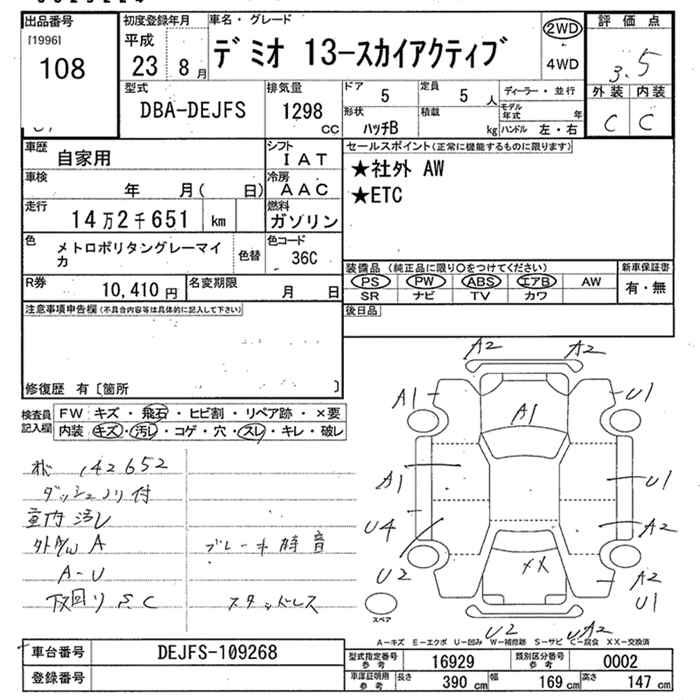 出品番号
[1996]
108
初度登録年月
平成
23 8月
車名・グレード
デミオ 13-スカイアクティブ
2WD
4WD
評価点
3.5
外装 内装
C C
型式
DBA-DEJFS
排気量
1298
cc
ドア
5
定員
5 人
形状
ハッチB
積載
kg
ディーラー・並行
モデル年式 年
ハンドル 左・右
車歴
自家用
シフト
IAT
車検
年 月( 日)
冷房
AAC
走行
14万2千651 km
燃料
ガソリン
色
メトロポリタングレーマイカ
色替
色コード
36C
R券
10,410 円
名変期限
月 日
セールスポイント(正常に機能するものに限ります)
★社外 AW
★ETC
装備品 (純正品に限り〇をつけてください)
PS PW ABS エアB AW
SR ナビ TV カワ
新車保証書
有・無
後日品
注意事項申告欄(不具合内容等は具体的に記入して下さい)
修復歴 有〔箇所 〕
検査員記入欄
FW キズ・飛石・ヒビ割・リペア跡・×要
内装 キズ・汚レ・コゲ・穴・スレ・キレ・破レ
142652
ダッシュノリ付
室内汚レ
A
A-U
下回りSC
ブレーキ錆音
スタッドレス
A2 A2
A1 U1
A1
A1 U1
U4 A2
U2 XX A2
U1
U2 A2
スペア
A-キズ E-エクボ U-凹み W-補修跡 S-サビ C-腐食 XX-交換済
車台番号
DEJFS-109268
登録番号
型式指定番号 参考
16929
類別区分番号 参考
0002
車庫証明用 参考
長さ 390 cm
幅 169 cm
高さ 147 cm